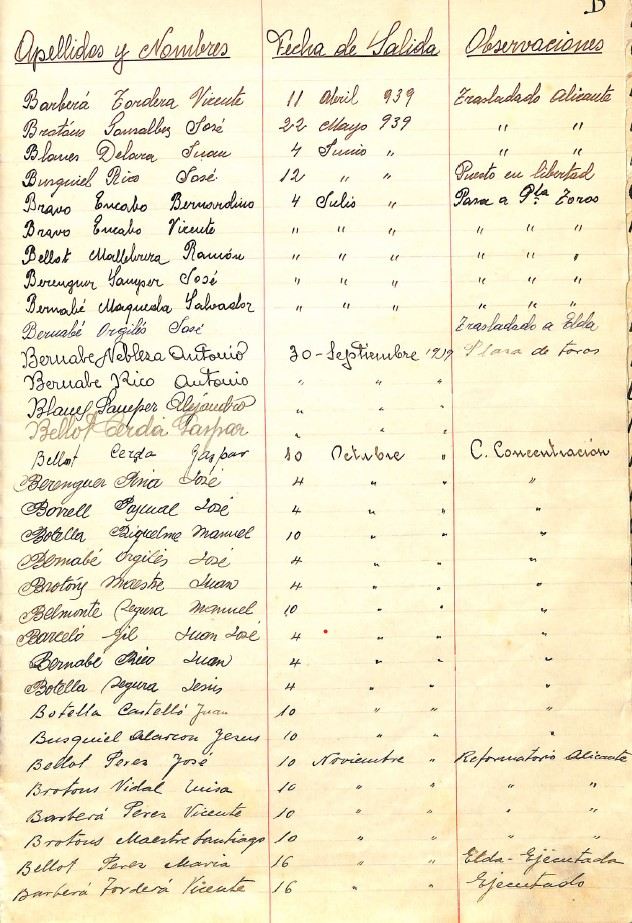 B
Apellidos y Nombres Fecha de Salida Observaciones
Barberá Tordera Vicente 11 Abril 939 Trasladado Alicante
Brotóns Gonsalbez José 22 Mayo 939 " "
Blanes Delara Juan 4 Junio " " "
Busquiel Rico José 12 " " Puesto en libertad
Bravo Encabo Bernardino 4 Julio " Pasa a Pla. Toros
Bravo Encabo Vicente " " " " " "
Bellot Ramón " " " " " "
Berenguer Samper José " " " " " "
Bernabé Maqueda Salvador " " " " " "
Bernabé Orgilés José Trasladado a Elda
Bernabe Nebleza Antonio 30 - Septiembre 1939 Plaza de toros
Bernabe Rico Antonio " " "
Blanes Samper Alejandro " " "
Bellot Cerdá Gaspar " " "
Bellot Cerda Gaspar 10 Octubre " C. Concentración
Berenguer José 4 " " "
Borrell Pascual José 4 " " "
Botella Riquelme Manuel 10 " " "
Bernabé Orgiles José 4 " " "
Brotóns Maestre Juan 4 " " "
Belmonte Segura Manuel 10 " " "
Barceló Gil Juan José 4 " " "
Bernabe Rico Juan 4 " " "
Botella Segura Jesús 4 " " "
Botella Castelló Juan 10 " " "
Busquiel Alarcon Jesus 10 " " "
Bellot Perez José 10 Noviembre " Reformatorio Alicante
Brotons Vidal Luisa 10 " " " "
Barberá Perez Vicente 10 " " " "
Brotons Maestre Santiago 10 " " " "
Bellot Perez Maria 16 " " Elda - Ejecutada
Barberá Torderá Vicente 16 " " Ejecutado